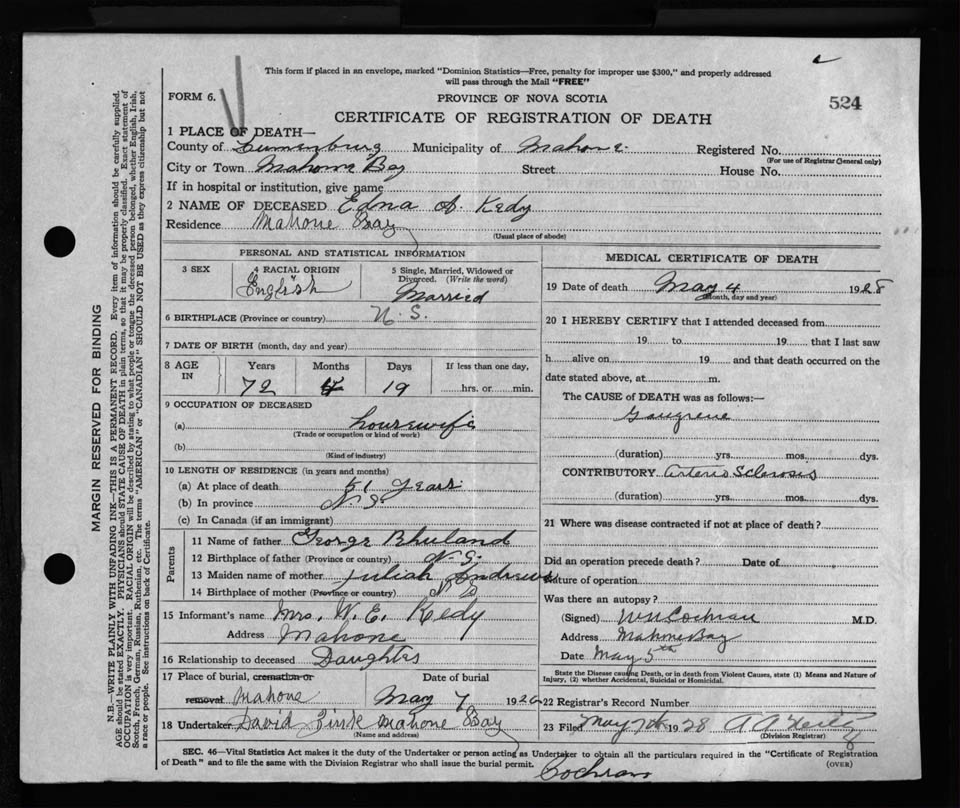 This form if placed in an envelope, marked "Dominion Statistics—Free, penalty for improper use $300," and properly addressed
will pass through the Mail "FREE"
FORM 6.
PROVINCE OF NOVA SCOTIA
524
CERTIFICATE OF REGISTRATION OF DEATH
1 PLACE OF DEATH—
County of Lunenburg Municipality of Mahone Registered No.
(For use of Registrar General only)
City or Town Mahone Bay Street House No.
If in hospital or institution, give name
2 NAME OF DECEASED Edna A. Kedy
Residence Mahone Bay
(Usual place of abode)
PERSONAL AND STATISTICAL INFORMATION
3 SEX
4 RACIAL ORIGIN
English
5 Single, Married, Widowed or
Divorced. (Write the word)
Married
6 BIRTHPLACE (Province or country) N. S.
7 DATE OF BIRTH (month, day and year)
8 AGE IN
Years Months Days If less than one day,
72 4 19 hrs. or min.
9 OCCUPATION OF DECEASED
(a) housewife
(Trade or occupation or kind of work)
(b)
(Kind of industry)
10 LENGTH OF RESIDENCE (in years and months)
(a) At place of death 51 years
(b) In province N. S
(c) In Canada (if an immigrant)
Parents
11 Name of father George Rhuland
12 Birthplace of father (Province or country) N. S.
13 Maiden name of mother Juliah Andrews
14 Birthplace of mother (Province or country) N S
15 Informant's name Mrs. W. E. Kedy
Address Mahone
16 Relationship to deceased Daughter
17 Place of burial, cremation or Date of burial
removal Mahone May 7 1928
18 Undertaker David Zink Mahone Bay
(Name and address)
MEDICAL CERTIFICATE OF DEATH
19 Date of death May 4 1928
(Month, day and year)
20 I HEREBY CERTIFY that I attended deceased from
19 to 19 that I last saw
h alive on 19 and that death occurred on the
date stated above, at m.
The CAUSE of DEATH was as follows:—
Gangrene
(duration) yrs. mos. dys.
CONTRIBUTORY Arterio Sclerosis
(duration) yrs. mos. dys.
21 Where was disease contracted if not at place of death?
Did an operation precede death? Date of
Nature of operation
Was there an autopsy?
(Signed) W N Cochran M.D.
Address Mahone Bay
Date May 5th
State the Disease causing Death, or in death from Violent Causes, state (1) Means and Nature of
Injury, (2) whether Accidental, Suicidal or Homicidal.
22 Registrar's Record Number
23 Filed May 7th 1928
(Division Registrar)
8
SEC. 46—Vital Statistics Act makes it the duty of the Undertaker or person acting as Undertaker to obtain all the particulars required in the "Certificate of Registration
of Death" and to file the same with the Division Registrar who shall issue the burial permit. (OVER)
Cochran
MARGIN RESERVED FOR BINDING
N.B.—WRITE PLAINLY WITH UNFADING INK—THIS IS A PERMANENT RECORD. Every item of information should be carefully supplied.
AGE should be stated EXACTLY. PHYSICIANS should STATE CAUSE OF DEATH in plain terms, so that it may be properly classified. Exact statement of
OCCUPATION is very important. RACIAL ORIGIN will be described by stating to what people or tongue the deceased person belonged, whether English, Irish,
Scotch, French, German, Russian, Ruthenian, etc. The terms "AMERICAN" or "CANADIAN" SHOULD NOT BE USED as they express citizenship but not
a race or people. See instructions on back of Certificate.